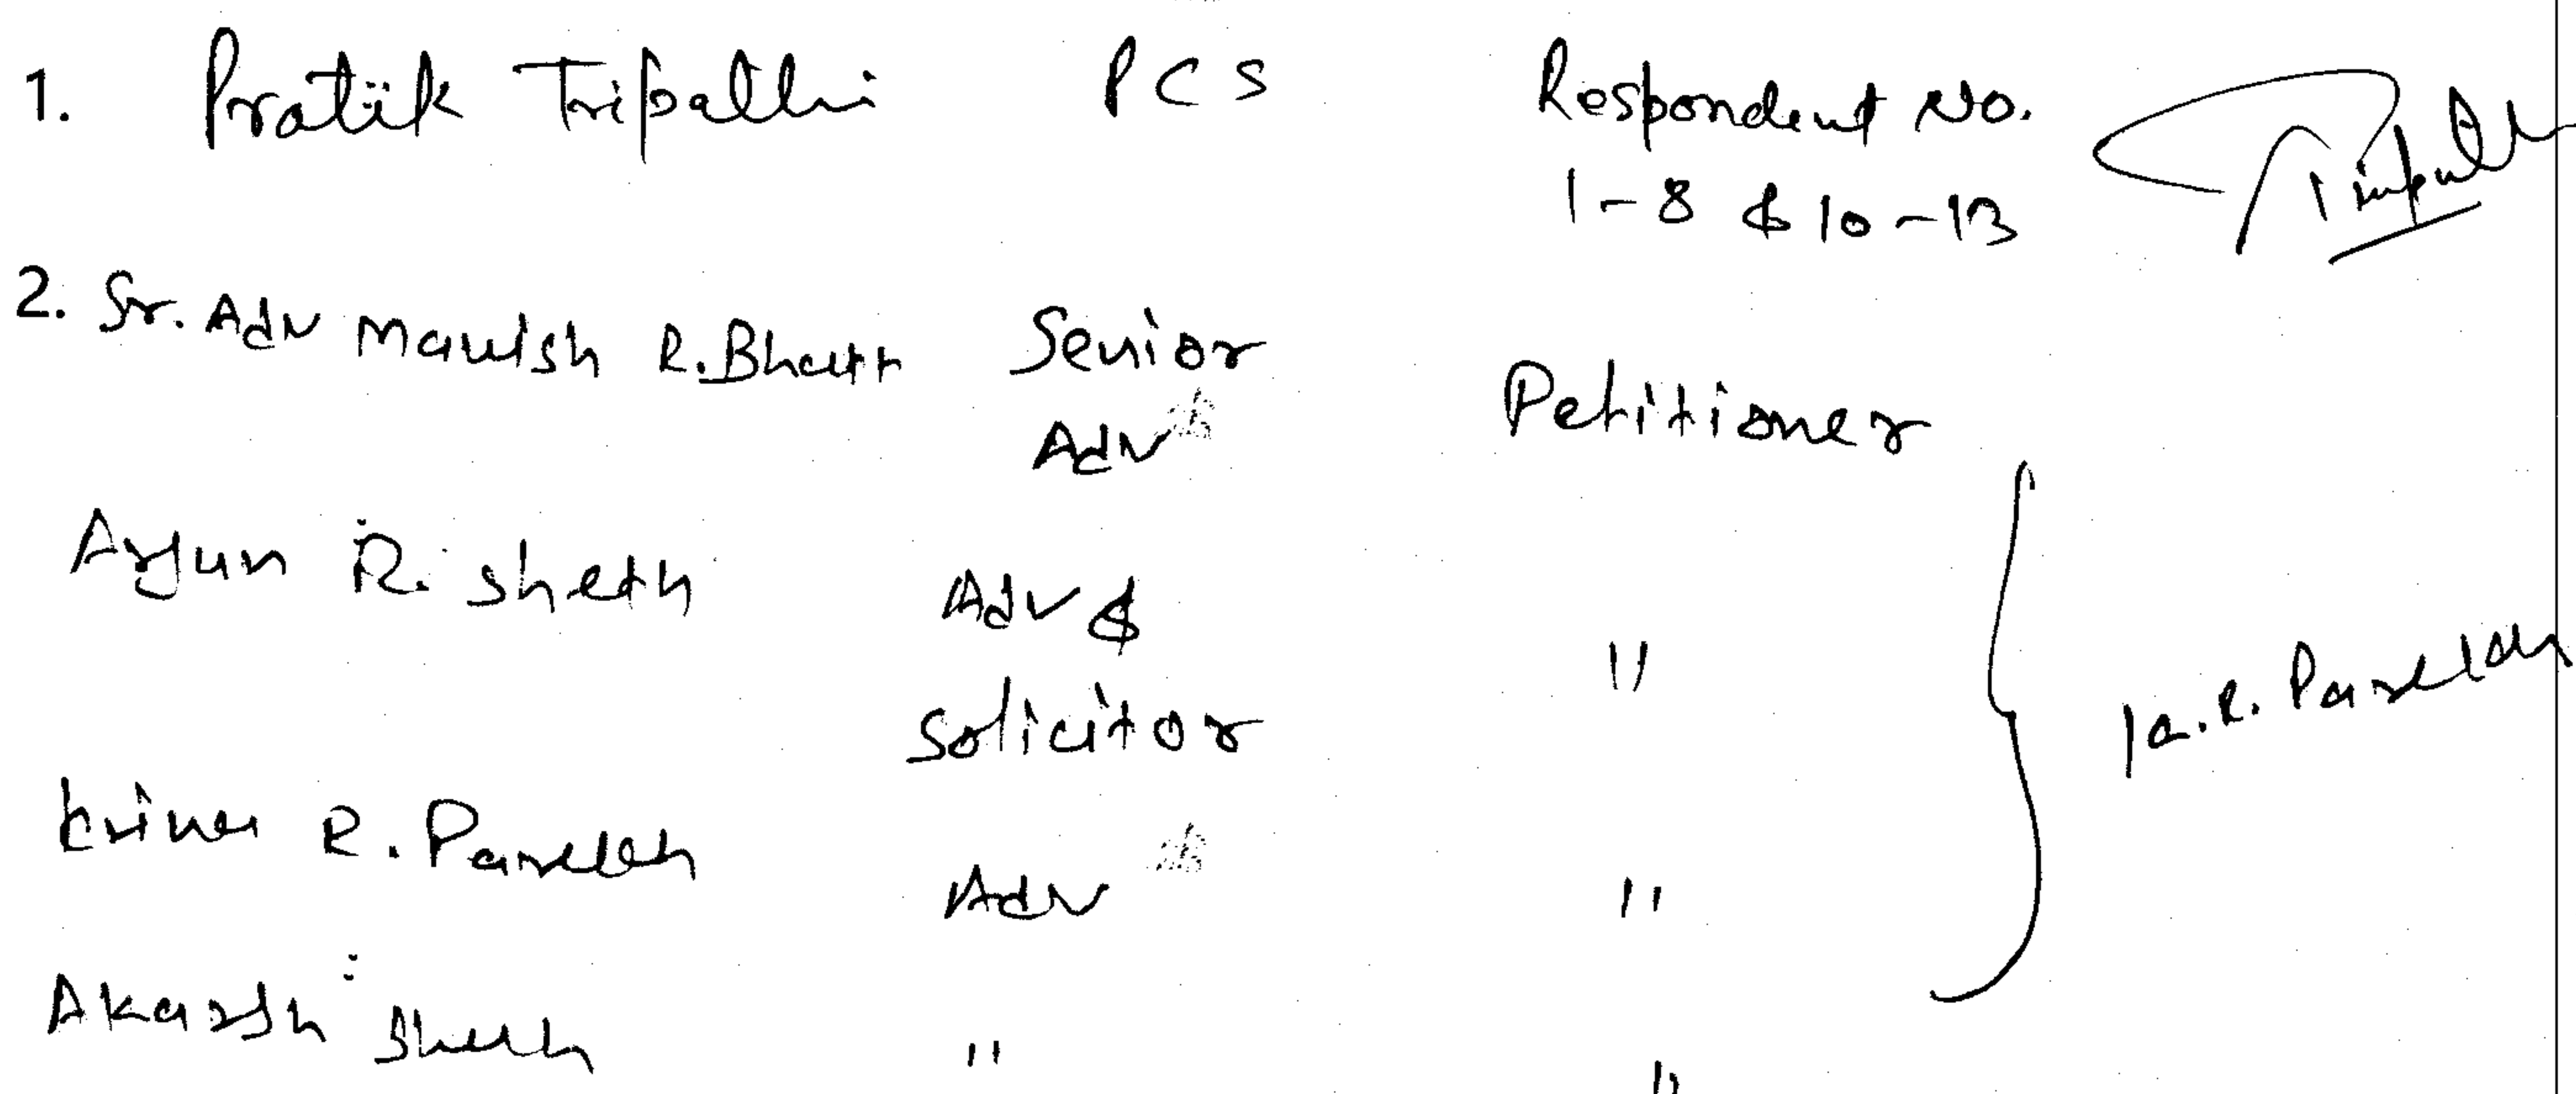 1. Pratik Tripathi PCS Respondent No.
1-8 & 10-13 Tripathi
2. Sr. Adv Manish R. Bhatt Senior
Adv Petitioner
Arjun R. Sheth Adv &
Solicitor "
Krina R. Parekh Adv " K.R. Parekh
Akarsh Sheth " "